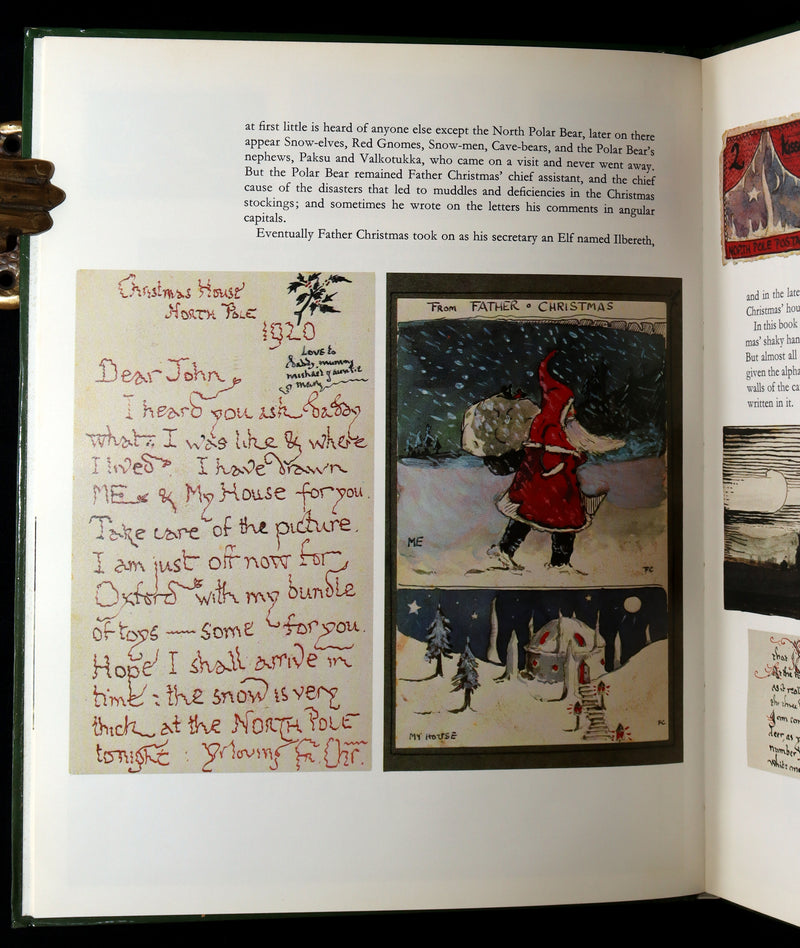 at first little is heard of anyone else except the North Polar Bear, later on there
appear Snow-elves, Red Gnomes, Snow-men, Cave-bears, and the Polar Bear's
nephews, Paksu and Valkotukka, who came on a visit and never went away.
But the Polar Bear remained Father Christmas' chief assistant, and the chief
cause of the disasters that led to muddles and deficiencies in the Christmas
stockings; and sometimes he wrote on the letters his comments in angular
capitals.
Eventually Father Christmas took on as his secretary an Elf named Ilbereth,
Christmas House
NORTH POLE
1920
Love to
daddy, mummy
michael & auntie
& mary
Dear John,
I heard you ask daddy
what I was like & where
I lived. I have drawn
ME & My House for you.
Take care of the picture.
I am just off now for
Oxford with my bundle
of toys — some for you.
Hope I shall arrive in
time: the snow is very
thick at the NORTH POLE
tonight: Yr loving Fr. Chr.
FROM FATHER CHRISTMAS
ME
FC
MY HOUSE
FC
2
NORTH POLE POSTA
and in the late
Christmas' hou
In this book
mas' shaky han
But almost all
given the alpha
walls of the ca
written in it.
that
number